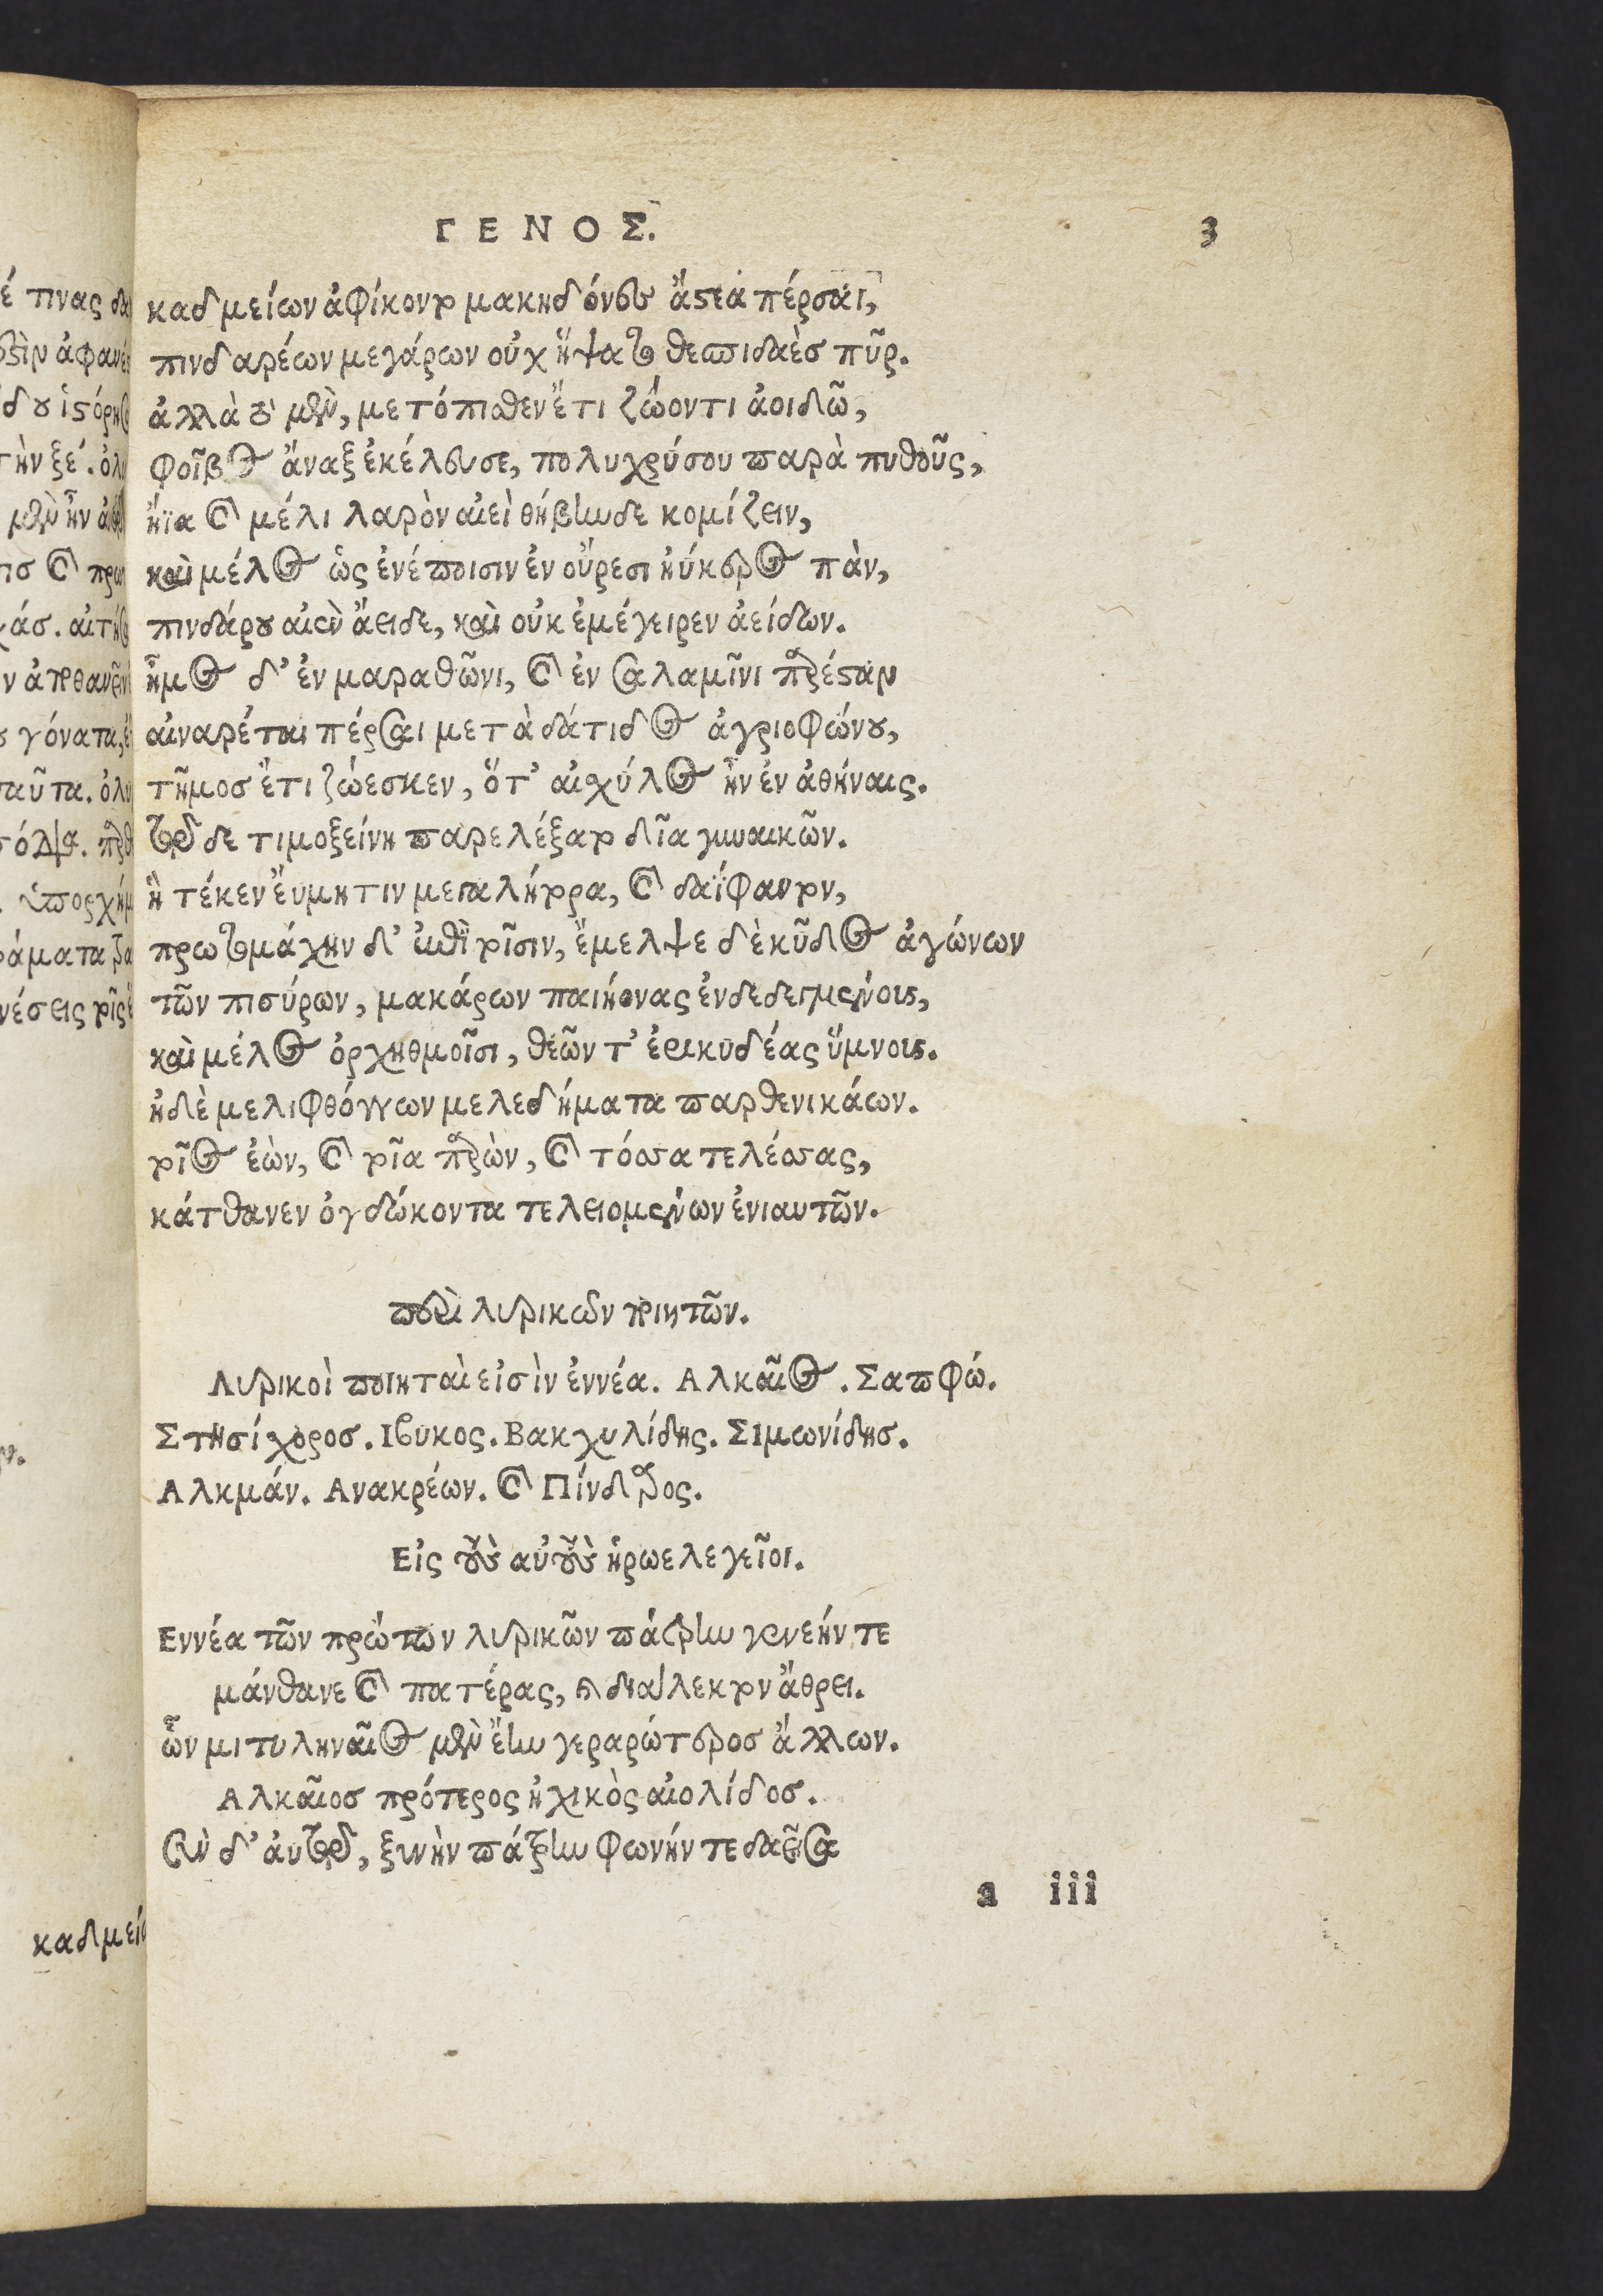 ΓΕΝΟΣ. 3
καδμείων ἀφίκοντο μακηδόνες ἄστεα πέρσαι,
πινδαρέων μεγάρων οὐχ ἥψατο θεσπιδαὲσ πῦρ.
ἀλλὰ τὸ μὲν, μετόπισθεν ἔτι ζώοντι ἀοιδῶ,
φοῖβος ἄναξ ἐκέλευσε, πολυχρύσου παρὰ πυθοῦς,
ἤϊα καὶ μέλι λαρὸν αἰεὶ θήβηνδε κομίζειν,
καὶ μέλος ὡς ἐνέποισιν ἐν οὔρεσι ἠύκερος πὰν,
πινδάρου αἰὲν ἄειδε, καὶ οὐκ ἐμέγειρεν ἀείδων.
ἦμος δ' ἐν μαραθῶνι, καὶ ἐν σαλαμῖνι παρέσταν
αἰναρέται πέρσαι μετὰ δάτιδος ἀγριοφώνου,
τῆμοσ ἔτι ζώεσκεν, ὅτ' αἰχύλος ἦν ἐν ἀθήναις.
τῶ δε τιμοξείνη παρελέξατο δῖα γυναικῶν.
ἣ τέκεν ἔυμητιν μεγαλήτορα, καὶ δαΐφαντον,
πρωτομάχην δ' ἐπὶ τοῖσιν, ἔμελψε δὲ κῦδος ἀγώνων
τῶν πισύρων, μακάρων παιήονας ἐνδεδειγμένους,
καὶ μέλος ὀρχηθμοῖσι, θεῶν τ' ἐρικυδέας ὕμνους.
ἠδὲ μελιφθόγγων μελεδήματα παρθενικάων.
τοῖος ἐὼν, καὶ τοῖα παθὼν, καὶ τόσσα τελέσσας,
κάτθανεν ὀγδώκοντα τελειομένων ἐνιαυτῶν.
περὶ λυρικῶν ποιητῶν.
Λυρικοὶ ποιηταὶ εἰσὶν ἐννέα. Αλκαῖος. Σαπφώ.
Στησίχοροσ. Ιβυκος. Βακχυλίδης. Σιμωνίδησ.
Αλκμάν. Ανακρέων. καὶ Πίνδαρος.
Εἰς τοὺς αὐτοὺς ἡρωελεγεῖοι.
Εννέα τῶν πρώτων λυρικῶν πάτρην γενεήν τε
μάνθανε καὶ πατέρας, καὶ διάλεκτον ἄθρει.
ὧν μιτυληναῖος μὲν ἔην γεραρώτεροσ ἄλλων.
Αλκαῖοσ πρότερος ἠχικὸς αἰολίδοσ.
Σὺν δ' ἀυτῶ, ξυνὴν πάτρην φωνήν τε δαεῖσα
a iii